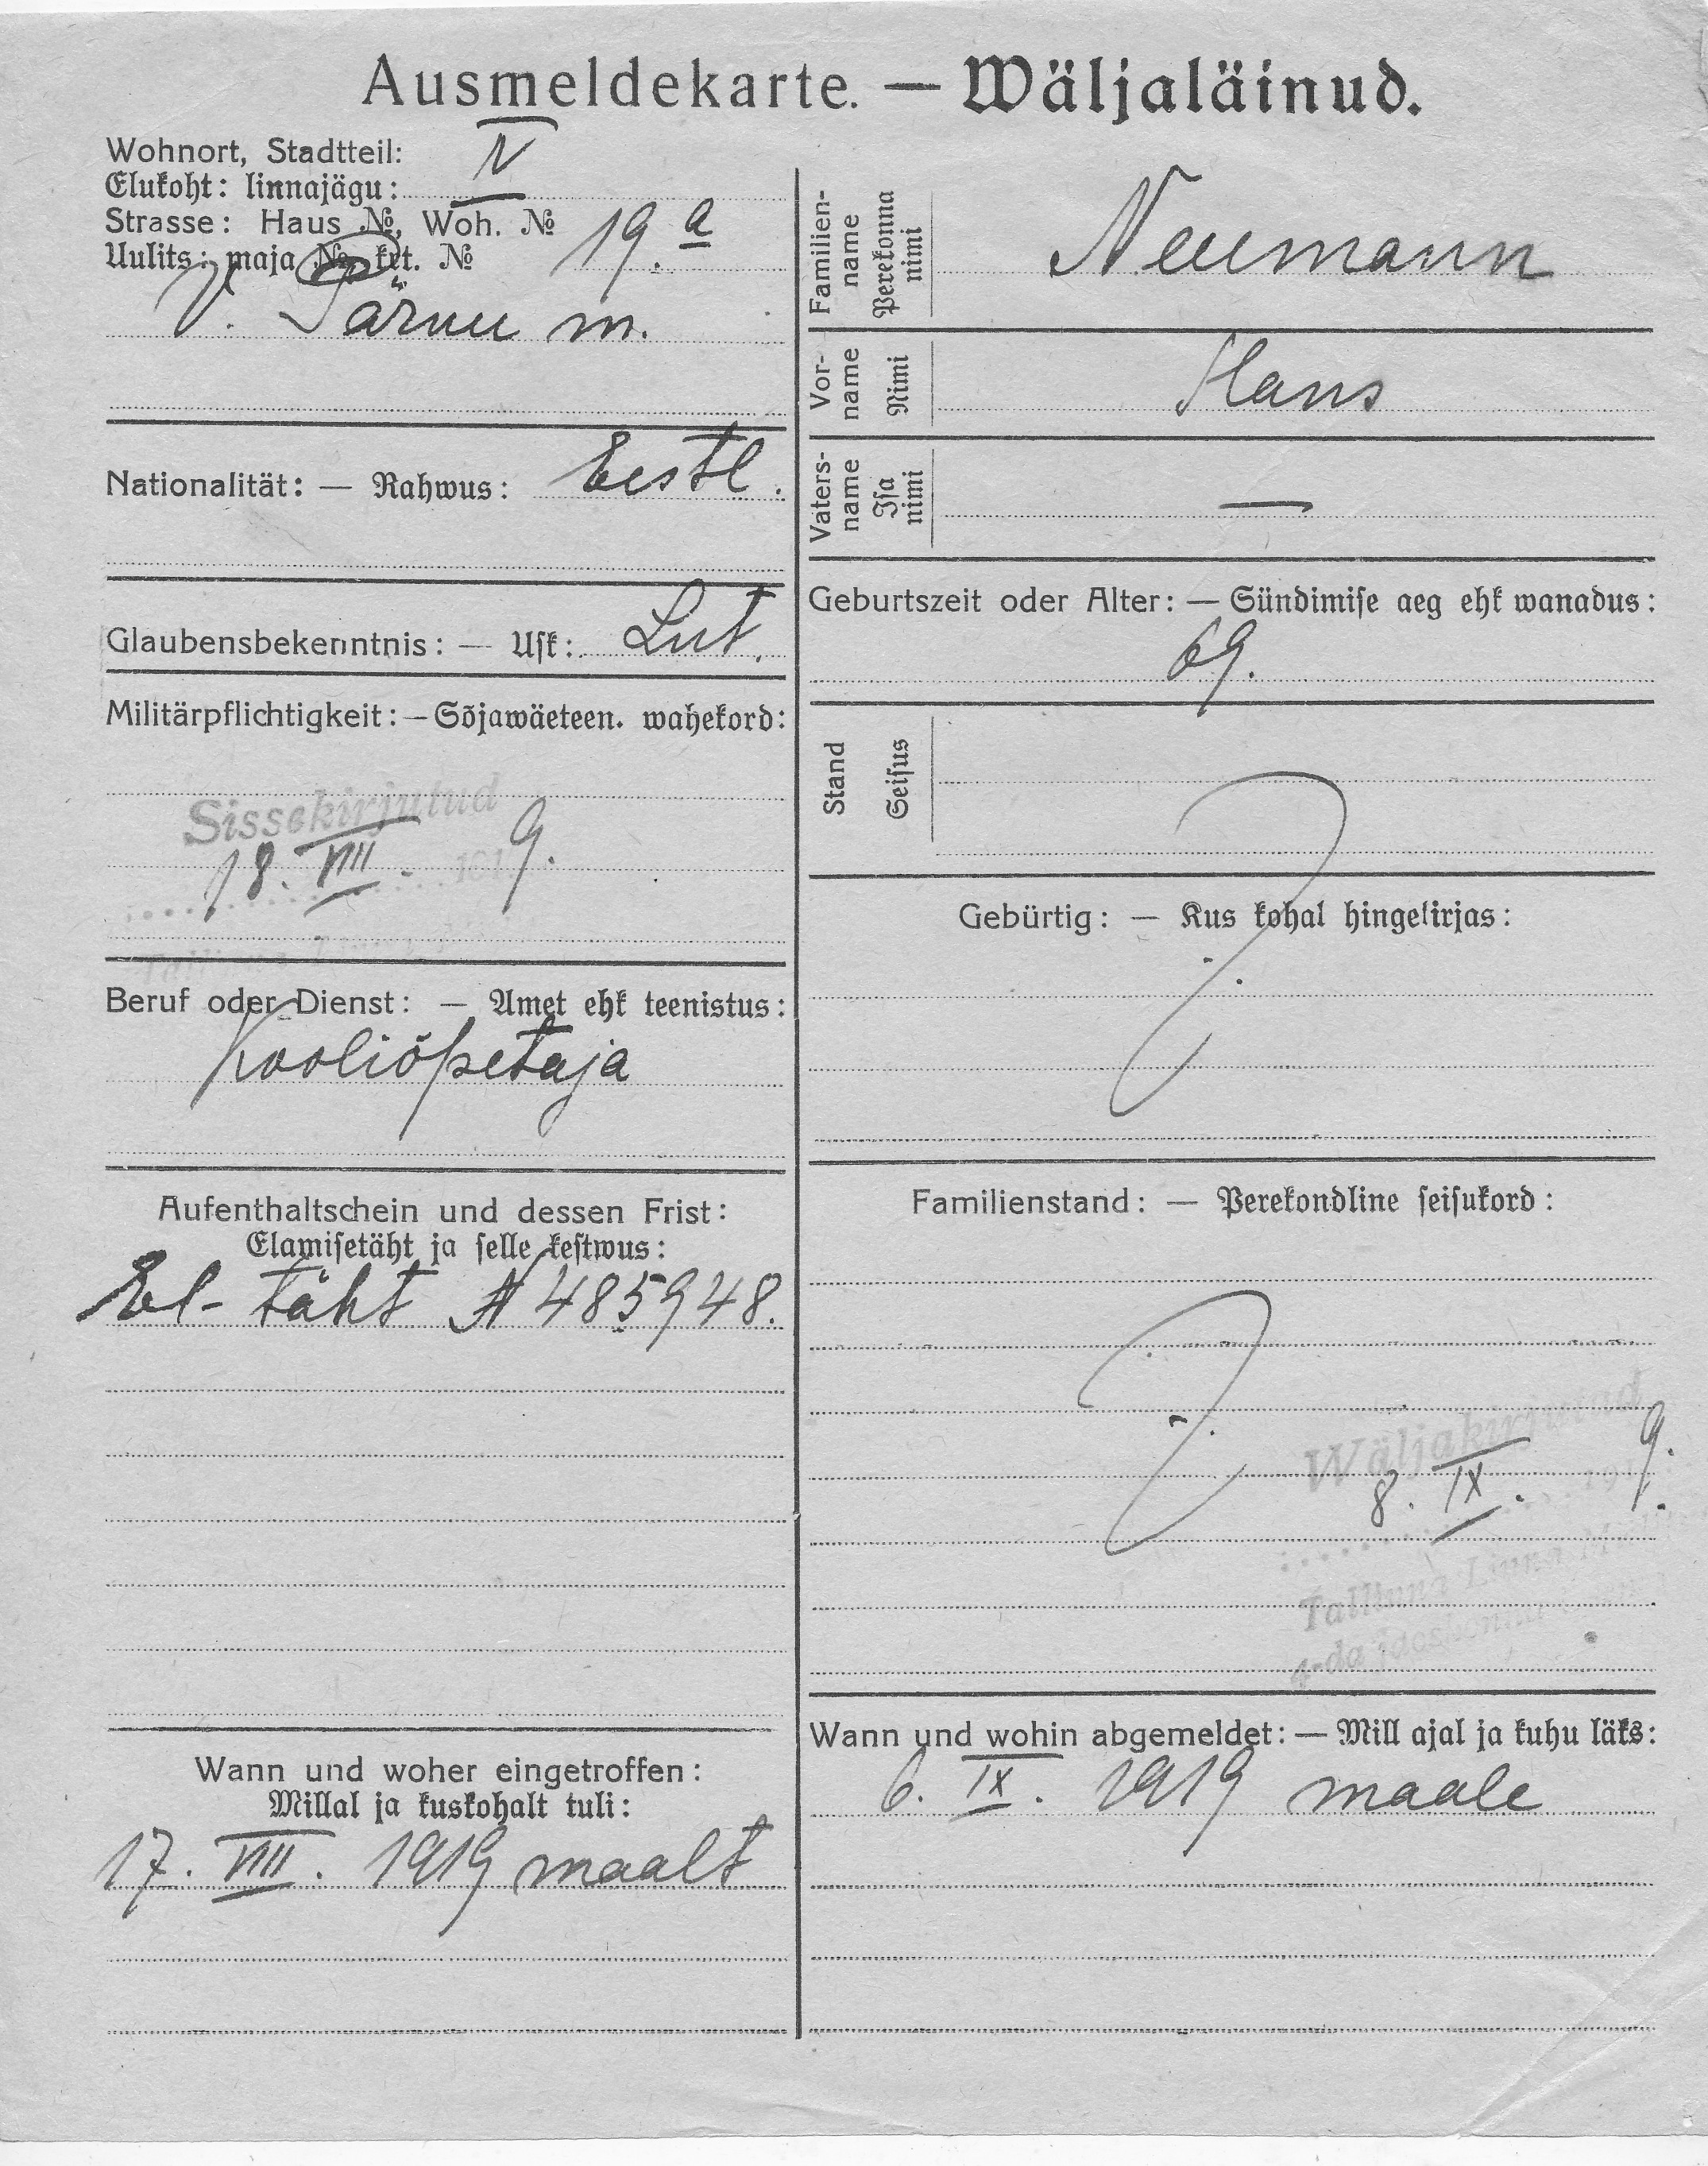 Ausmeldekarte. — Wäljaläinud.
Wohnort, Stadtteil:
Elukoht: linnajägu: IV
Strasse: Haus №, Woh. №
Uulits: maja № krt. № 19.a
V. Pärnu m.
Nationalität: — Rahwus: Eestl.
Glaubensbekenntnis: — Usk: Lut.
Militärpflichtigkeit: — Sõjawäeteen. wahekord:
Sissekirjutud
18. VIII. 1919.
Beruf oder Dienst: — Amet ehk teenistus:
Kooliõpetaja
Aufenthaltschein und dessen Frist:
Elamisetäht ja selle kestwus:
El- täht № 485948.
Wann und woher eingetroffen:
Millal ja kuskohalt tuli:
17. VIII. 1919 maalt
Familien-
name
Perekonna
nimi
Neumann
Vor-
name
Nimi
Hans
Vaters-
name
Isa
nimi
—
Geburtszeit oder Alter: — Sündimise aeg ehk wanadus:
69.
Stand
Seisus
Gebürtig: — Kus kohal hingekirjas:
Familienstand: — Perekondline seisukord:
Wäljakirjutud
8. IX. 1919.
Tallinna Linna
4-da jaoskonna
Wann und wohin abgemeldet: — Mill ajal ja kuhu läks:
6. IX. 1919 maale